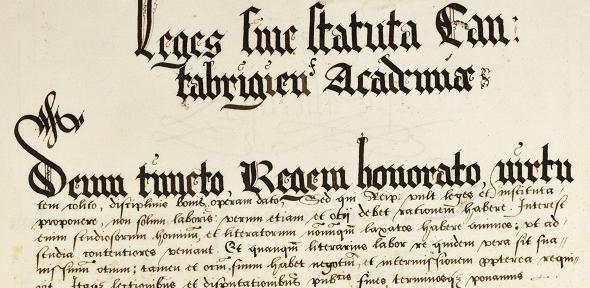 Leges siue statuta Can:
tabrigieñ Academiæ
Deum timeto, Regem honorato, uirtu
tem colito, discipline bonis operam dato. Sed qm̃ Reip. vult leges et instituta
proponere, non solum laboris: verum etiam et otij debet rationem habere. Interest
enim studiosorum hominum, et literatorum nonnunqm̃ laxatos habere animos: vt ad
studia contentiores veniant. Et quanqm̃ literarius labor re quidem vera sit sua-
uissimum otium: tamen et otiũ suum habet negotiũ, et intermissionem propterea requi-
rit. Itaqз lectionibus et disputationibus publicis fines terminosqз ponamus